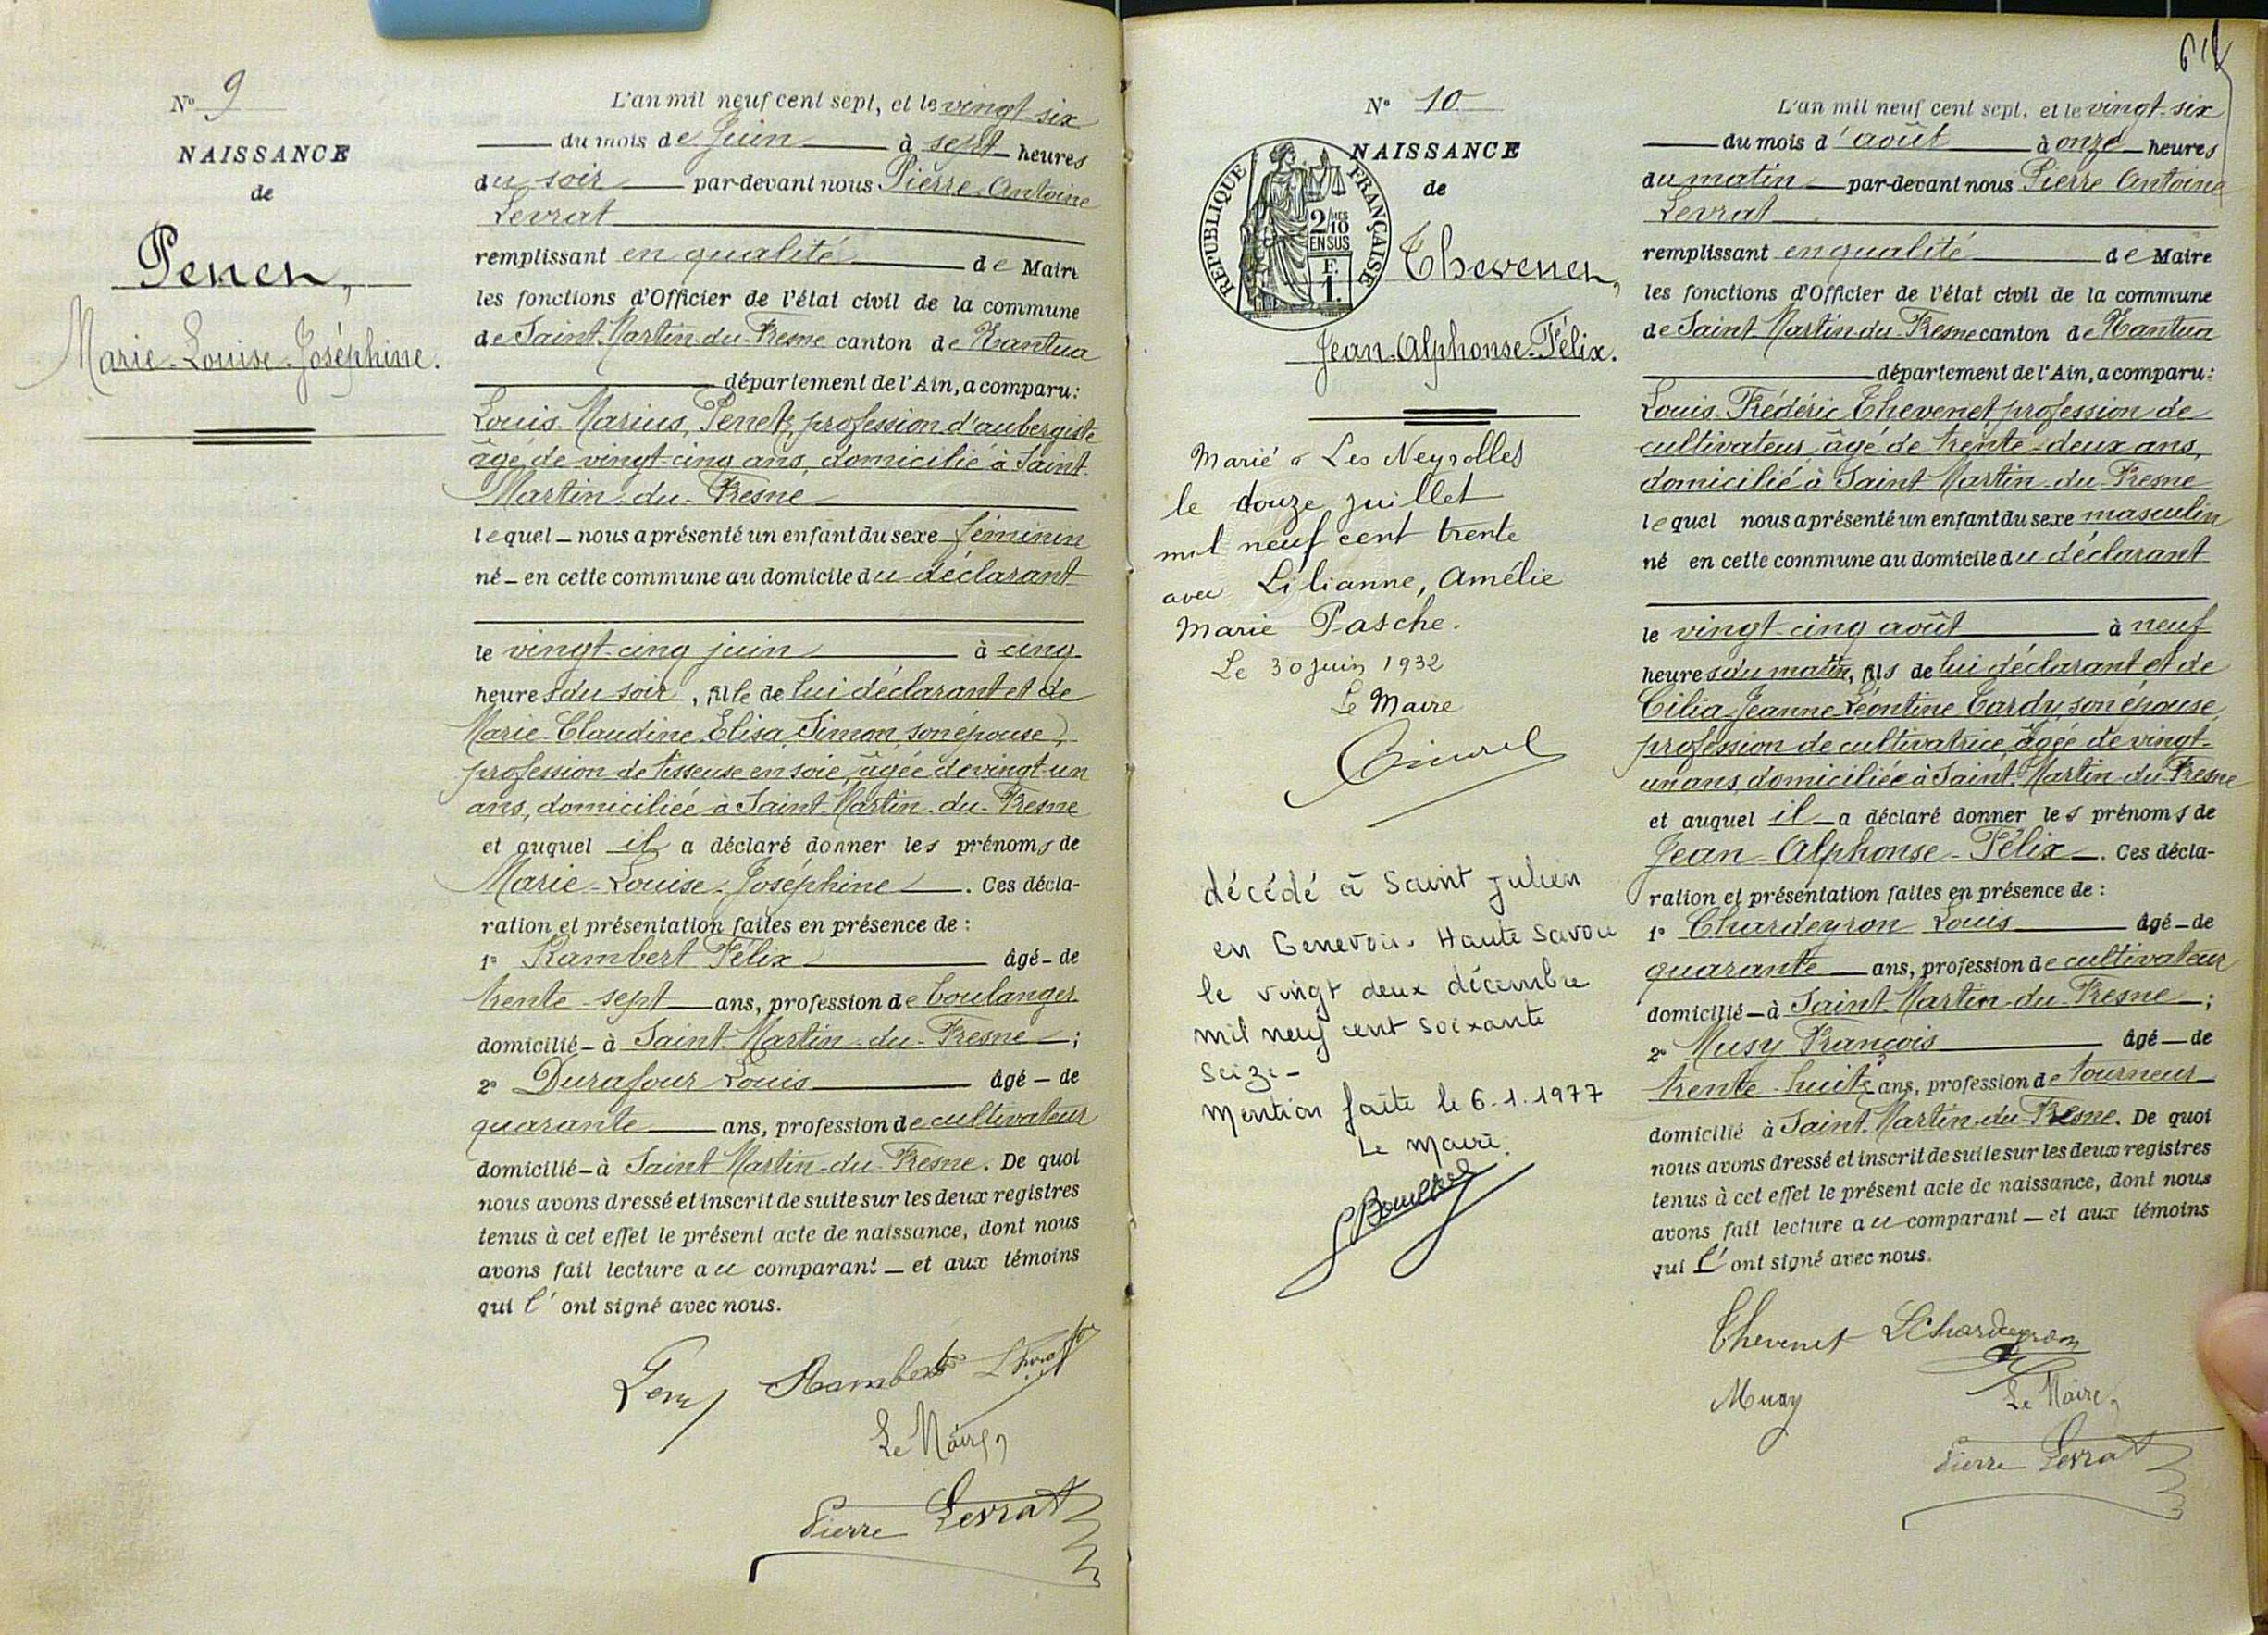 N° 9
NAISSANCE
de
Penen,
Marie-Louise-Joséphine.
L'an mil neuf cent sept, et le vingt-six
du mois de Juin à sept heures
du soir par-devant nous Pierre Antoine
Levrat
remplissant en qualité de Maire
les fonctions d'Officier de l'état civil de la commune
de Saint-Martin-du-Fresne canton de Nantua
département de l'Ain, a comparu:
Louis Marius, Penet, profession d'aubergiste
âgé de vingt-cinq ans, domicilié à Saint-
Martin-du-Fresne
lequel nous a présenté un enfant du sexe féminin
né en cette commune au domicile du déclarant
le vingt-cinq juin à cinq
heures du soir, fille de lui déclarant et de
Marie-Claudine Elisa, Simon, son épouse,
profession de tisseuse en soie, âgée de vingt-un
ans, domiciliée à Saint-Martin-du-Fresne
et auquel il a déclaré donner les prénoms de
Marie-Louise-Joséphine. Ces décla-
ration et présentation faites en présence de:
1° Rambert Félix âgé de
trente-sept ans, profession de boulanger
domicilié à Saint-Martin-du-Fresne;
2° Durafour Louis âgé de
quarante ans, profession de cultivateur
domicilié à Saint-Martin-du-Fresne. De quoi
nous avons dressé et inscrit de suite sur les deux registres
tenus à cet effet le présent acte de naissance, dont nous
avons fait lecture au comparant et aux témoins
qui l'ont signé avec nous.
Rambert
Le Maire,
Pierre Levrat
N° 10
NAISSANCE
de
RÉPUBLIQUE FRANÇAISE
2/10 EN SUS
F. 1.
Thevenen,
Jean-Alphonse-Félix.
Marié à Les Neyrolles
le douze juillet
mil neuf cent trente
avec Lilianne, Amélie
Marie Pasche.
Le 30 juin 1932
Le Maire
décédé à Saint Julien
en Genevois. Haute Savoie
le vingt deux décembre
mil neuf cent soixante
seize-
Mention faite le 6.1.1977
Le Maire.
L'an mil neuf cent sept, et le vingt-six
du mois d'août à onze heures
du matin par-devant nous Pierre Antoine
Levrat
remplissant en qualité de Maire
les fonctions d'Officier de l'état civil de la commune
de Saint-Martin-du-Fresne canton de Nantua
département de l'Ain, a comparu:
Louis-Frédéric Thevenet, profession de
cultivateur âgé de trente-deux ans,
domicilié à Saint-Martin-du-Fresne
lequel nous a présenté un enfant du sexe masculin
né en cette commune au domicile du déclarant
le vingt-cinq août à neuf
heures du matin, fils de lui déclarant et de
Cilia-Jeanne-Léontine Tardy, son épouse,
profession de cultivatrice, âgée de vingt-
un ans, domiciliée à Saint-Martin-du-Fresne
et auquel il a déclaré donner les prénoms de
Jean-Alphonse-Félix. Ces décla-
ration et présentation faites en présence de:
1° Chardeyron Louis âgé de
quarante ans, profession de cultivateur
domicilié à Saint-Martin-du-Fresne;
2° Musy François âgé de
trente-huit ans, profession de tourneur
domicilié à Saint-Martin-du-Fresne. De quoi
nous avons dressé et inscrit de suite sur les deux registres
tenus à cet effet le présent acte de naissance, dont nous
avons fait lecture au comparant et aux témoins
qui l'ont signé avec nous.
Thevenet LChardeyron
Musy
Le Maire,
Pierre Levrat